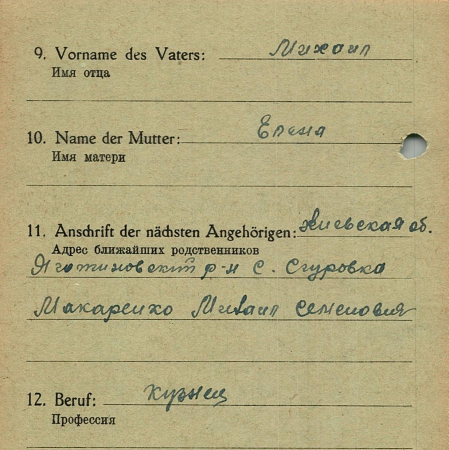 9. Vorname des Vaters: Михаил
Имя отца
10. Name der Mutter: Елена
Имя матери
11. Anschrift der nächsten Angehörigen: Киевская об.
Адрес ближайших родственников
Яготиновский р-н С. Сгуровка
Макаренко Михаил Семенович
12. Beruf: кузнец
Профессия